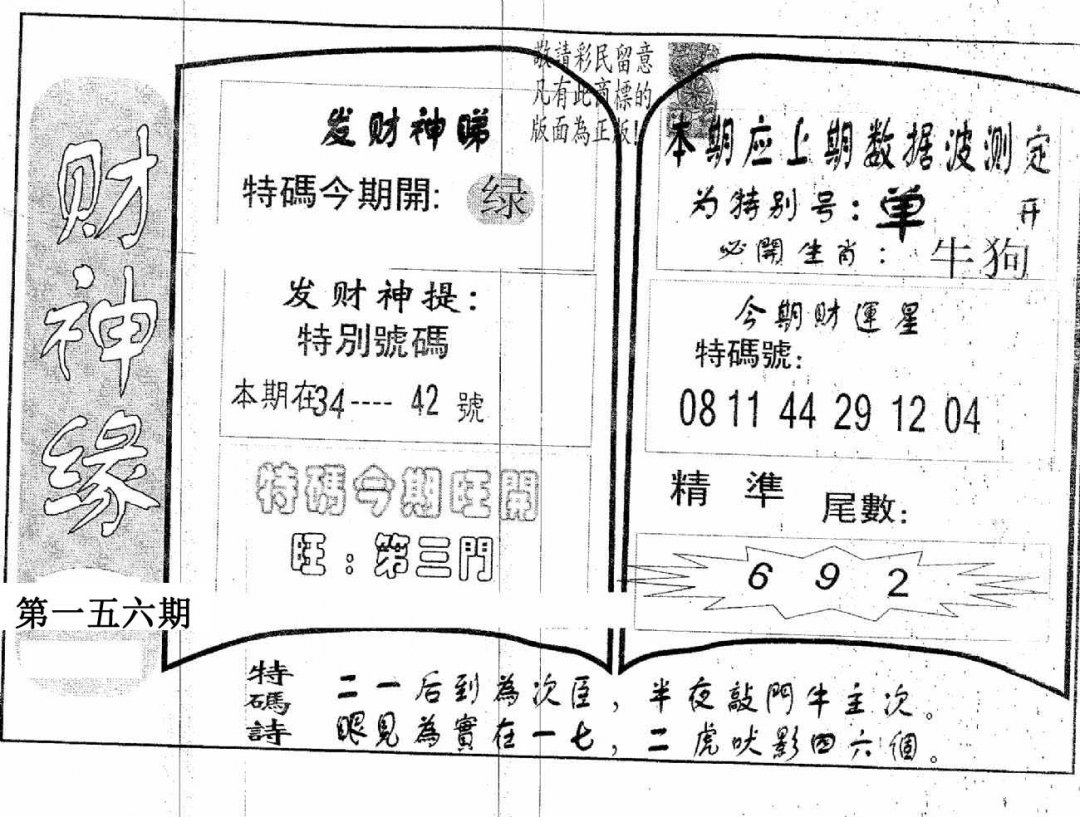 财神缘
第一五六期
敬請彩民留意
凡有此商標的
版面為正版!
发财神睇
特碼今期開: 绿
发财神提:
特別號碼
本期在34----42號
特碼今期旺開
旺:第三門
本期应上期数据波测定
为特别号:单 开
必開生肖: 牛狗
今期财運星
特碼號:
08 11 44 29 12 04
精準 尾數:
6 9 2
特碼詩
二一后到為次臣,半夜敲門牛主次。
眼見為實在一七,二虎吠影四六個。